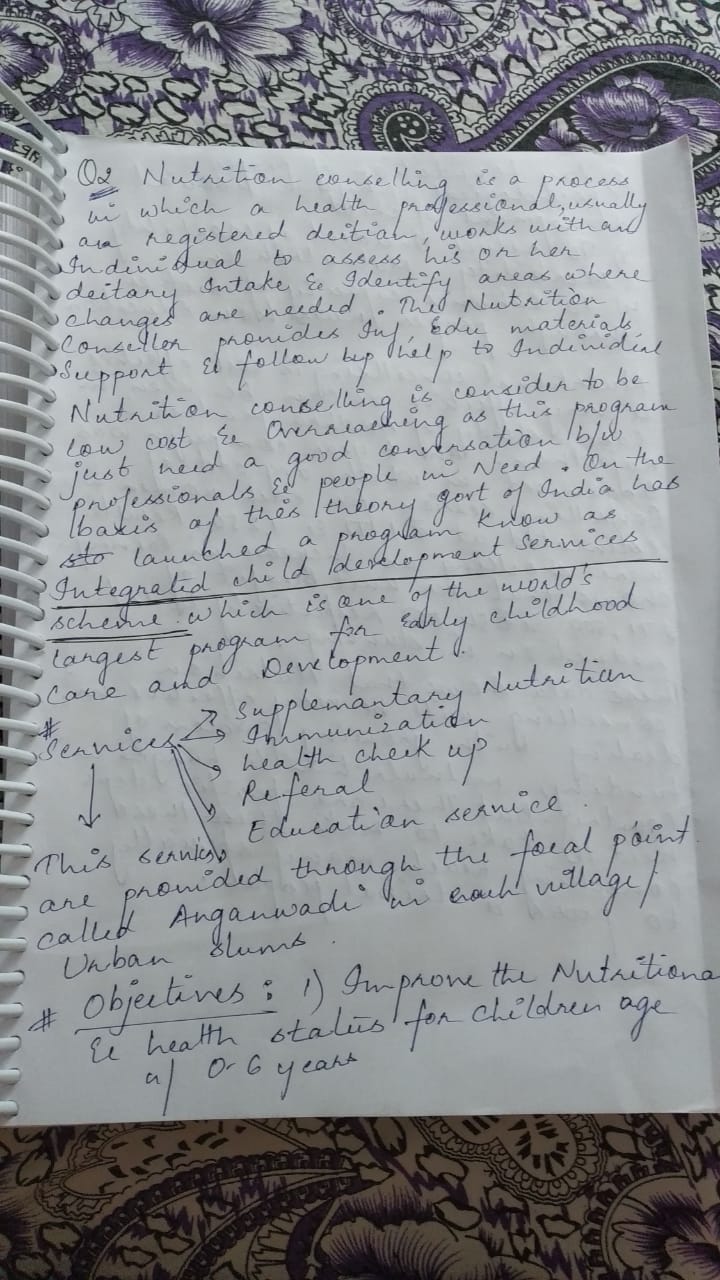 Q2 Nutrition conselling is a process
in which a health professional, usually
a registered deitian, works with an
Individual to assess his or her
deitary Intake & Identify areas where
changes are needed. The Nutrition
Conseller provides Inf, Edu materials,
Support & follow up help to Individial
Nutrition conselling is consider to be
low cost & Overreaching as this program
just need a good conversation b/w
professionals & people in Need. On the
basis of this theory govt of India has
launched a program know as
Integrated child development Services
scheme. which is one of the world's
largest program for Early childhood
care and Development.
# Services
Supplemantary Nutrition
Immunization
health check up
Referal
Education service
This services
are provided through the focal point
called Anganwadi in each village/
Urban slums.
# Objectives : 1) Improve the Nutritiona
& health status for children age
of 0-6 years